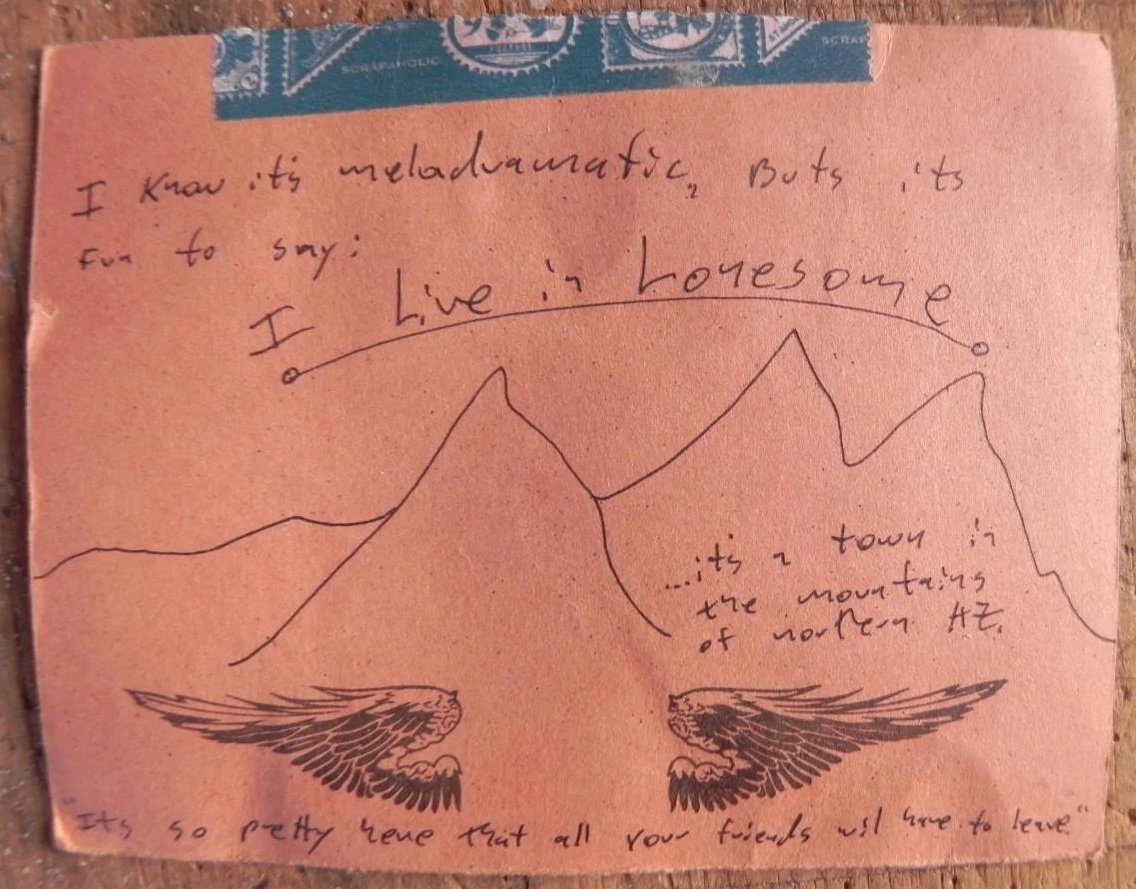 SCRAPAHOLIC
SCRAP
I Know it's meladramatic, Buts its
Fun to say:
I Live in Lonesome
...it's a town in
the mountains
of northern AZ.
"Its so pretty here that all your friends wil have to leave."